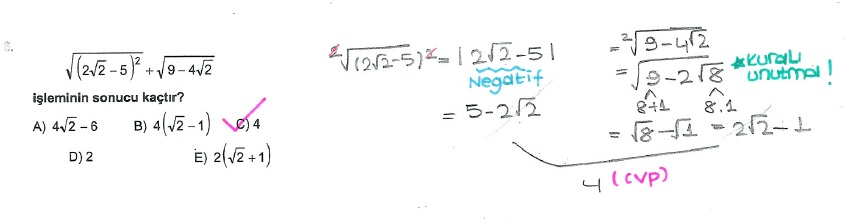 √(2√2 − 5)² + √9 − 4√2
işleminin sonucu kaçtır?
A) 4√2 − 6 B) 4(√2 − 1) C) 4
D) 2 E) 2(√2 + 1)
²√(2√2 − 5)² = |2√2 − 5|
Negatif
= 5 − 2√2
= ²√9 − 4√2
= √9 − 2√8 *kuralı unutma!
8+1 8.1
= √8 − √1 = 2√2 − 1
4 (cvp)